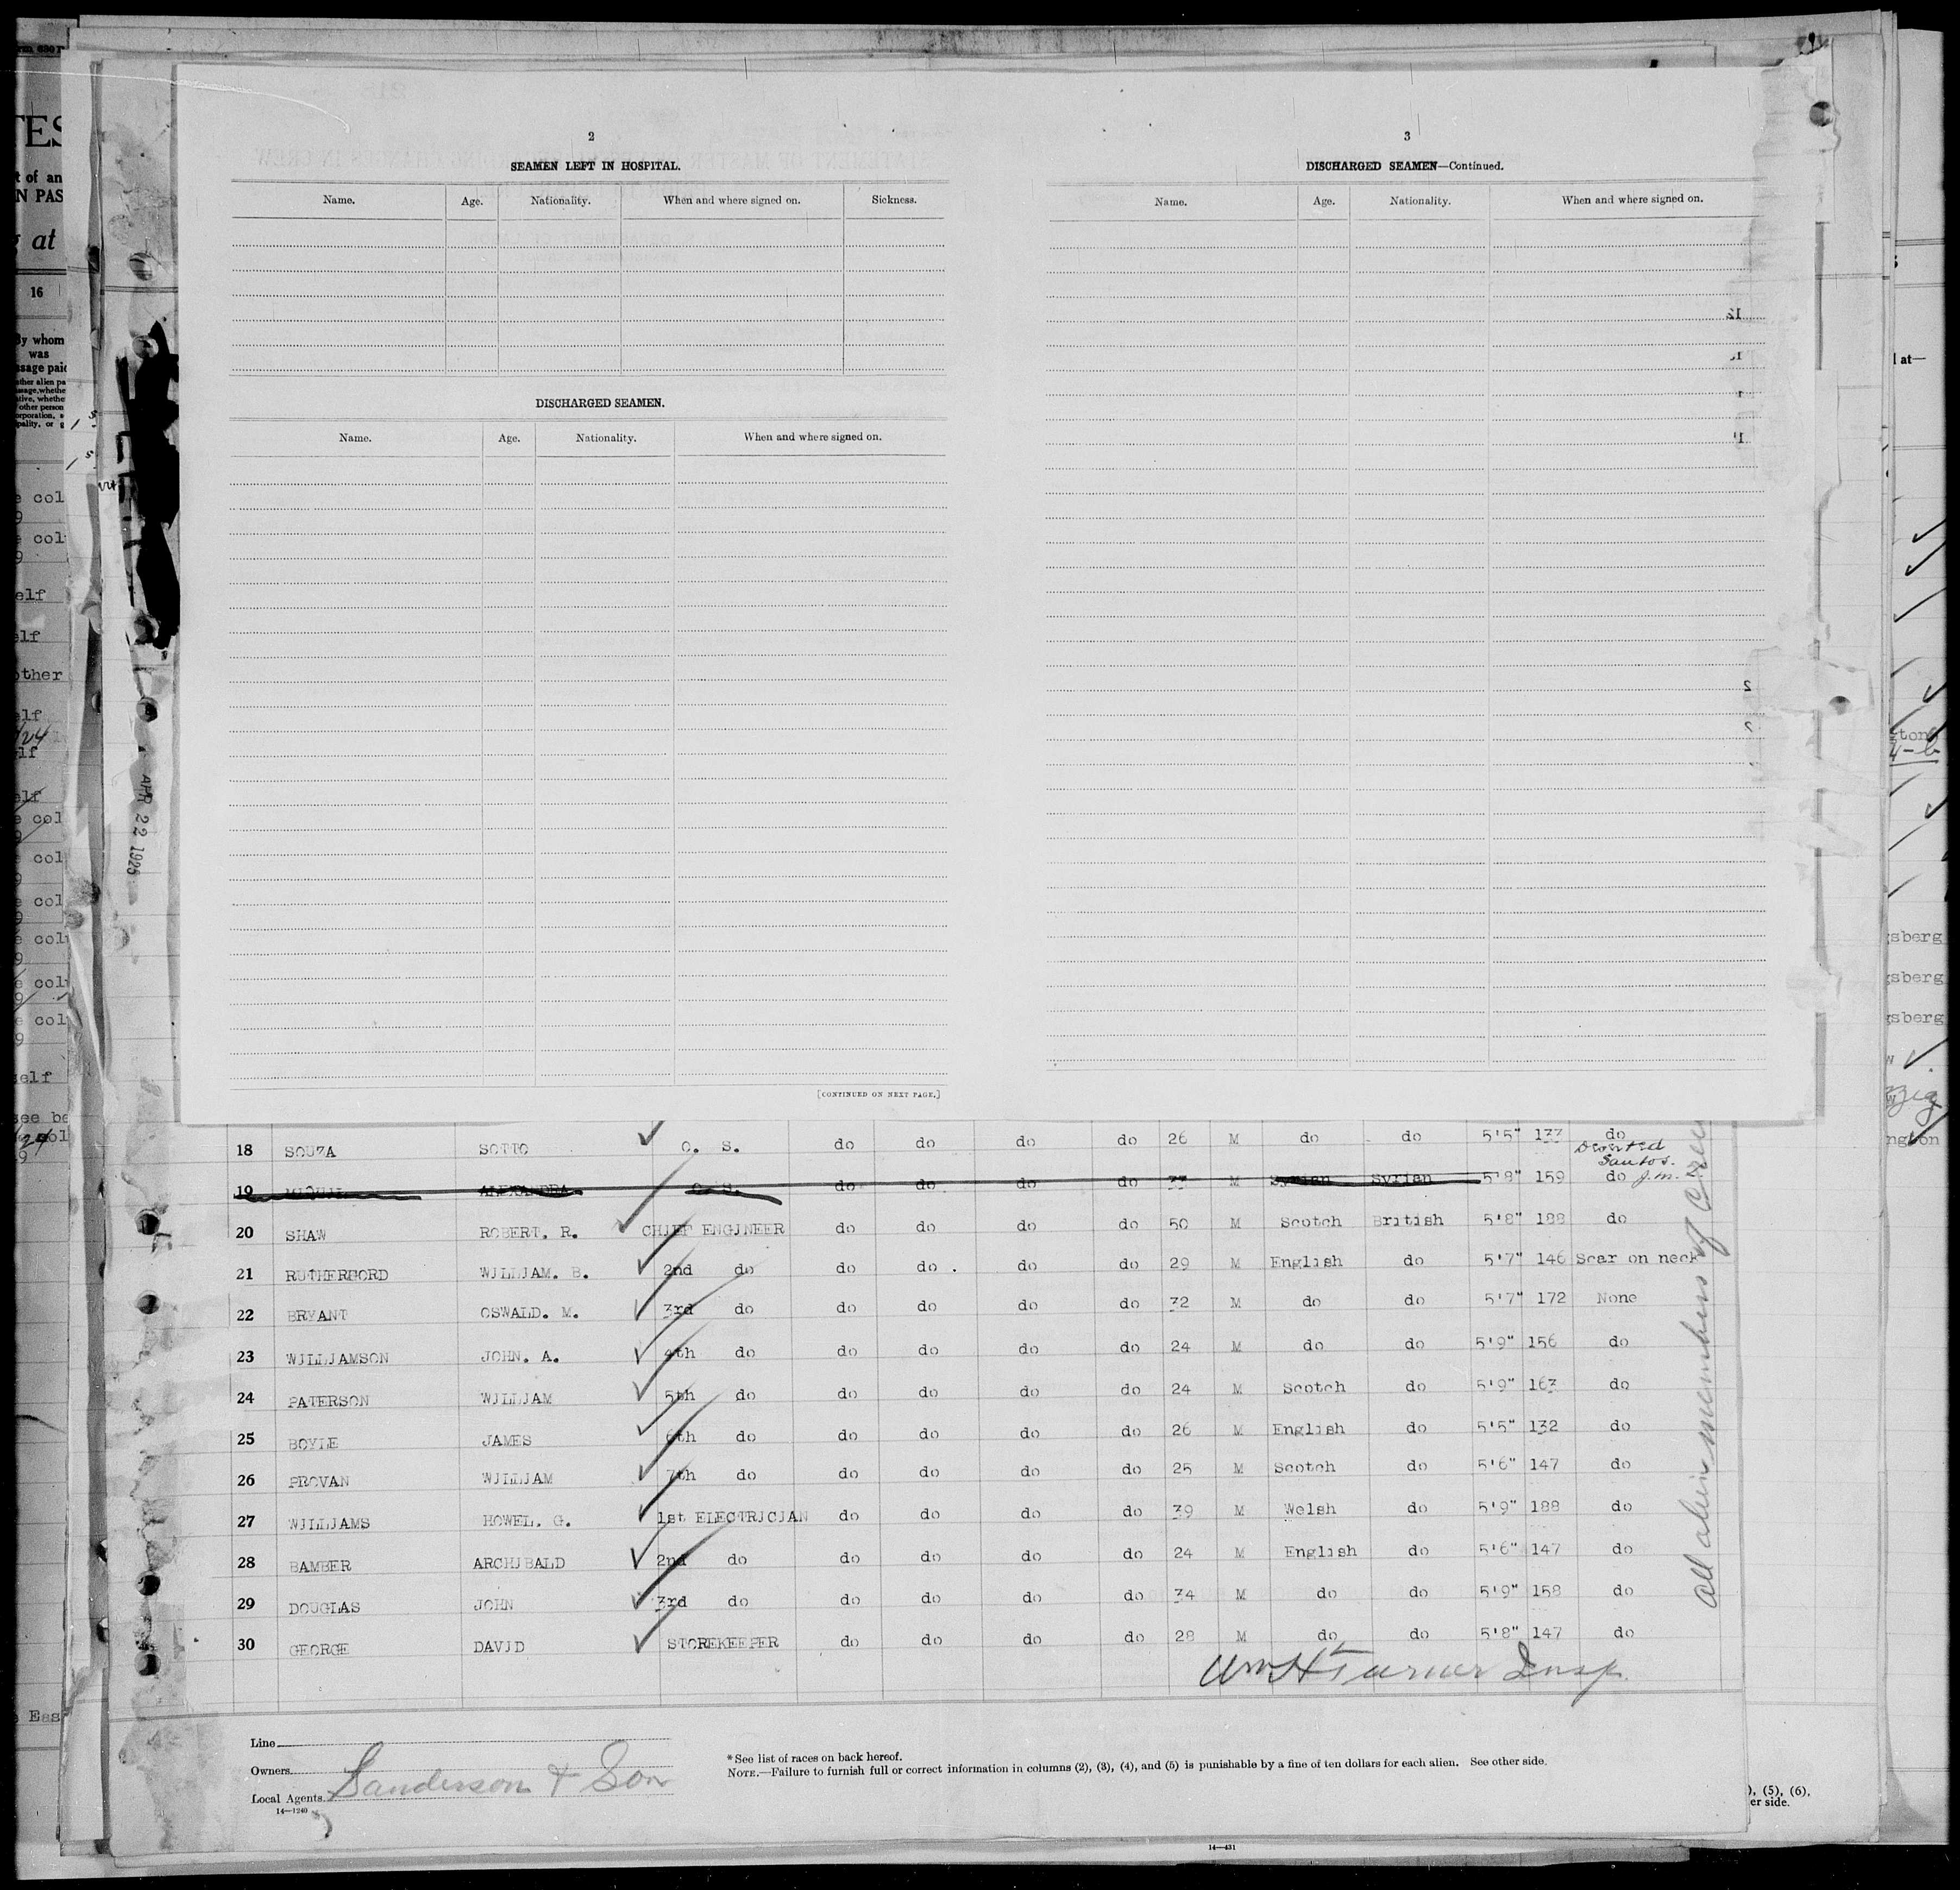 2
SEAMEN LEFT IN HOSPITAL.
Name. Age. Nationality. When and where signed on. Sickness.
DISCHARGED SEAMEN.
Name. Age. Nationality. When and where signed on.
[CONTINUED ON NEXT PAGE.]
3
DISCHARGED SEAMEN—Continued.
Name. Age. Nationality. When and where signed on.
TES
t of an
N PAS
g at
16
By whom
was
ssage paid
APR 22 1925
l at—
18 SOUZA SOTTO O. S. do do do do 26 M do do 5'5" 133 do
Deserted
Santos.
19 do do do do 33 M Syrian Syrian 5'8" 159 do J.M.
20 SHAW ROBERT. R. CHIEF ENGINEER do do do do 50 M Scotch British 5'8" 188 do
21 RUTHERFORD WILLIAM. B. 2nd do do do do do 29 M English do 5'7" 146 Scar on neck
22 BRYANT OSWALD. M. 3rd do do do do do 32 M do do 5'7" 172 None
23 WILLIAMSON JOHN. A. 4th do do do do do 24 M do do 5'9" 156 do
24 PATERSON WILLIAM 5th do do do do do 24 M Scotch do 5'9" 163 do
25 BOYLE JAMES 6th do do do do do 26 M English do 5'5" 132 do
26 PROVAN WILLIAM 7th do do do do do 25 M Scotch do 5'6" 147 do
27 WILLIAMS HOWEL. G. 1st ELECTRICIAN do do do do 39 M Welsh do 5'9" 188 do
28 BAMBER ARCHIBALD 2nd do do do do do 24 M English do 5'6" 147 do
29 DOUGLAS JOHN 3rd do do do do do 34 M do do 5'9" 158 do
30 GEORGE DAVID STOREKEEPER do do do do 28 M do do 5'8" 147 do
Wm H Turner Insp.
All alien members of crew
Line
Owners
Local Agents Sanderson & Son
14—1240
* See list of races on back hereof.
NOTE.—Failure to furnish full or correct information in columns (2), (3), (4), and (5) is punishable by a fine of ten dollars for each alien. See other side.
), (5), (6),
er side.
14—431